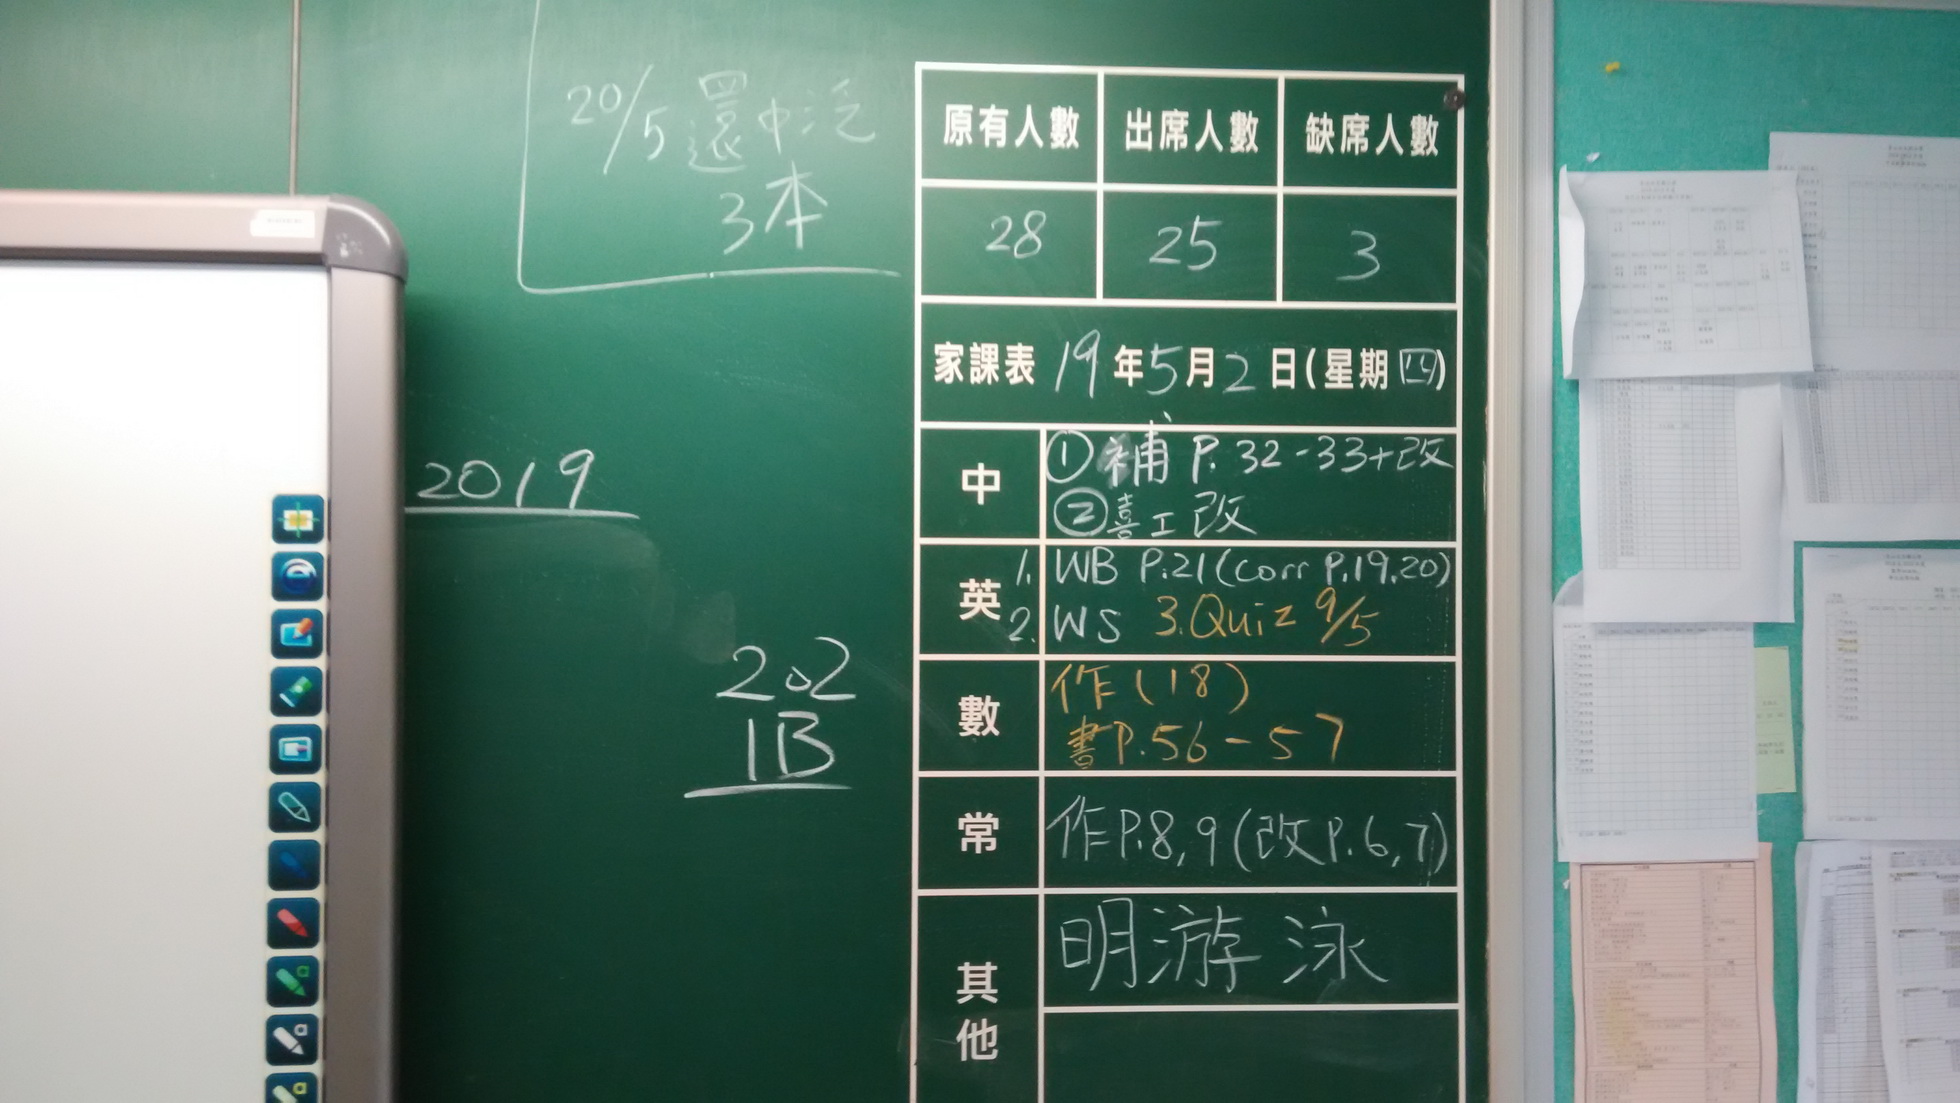 20/5 還中汔
3本
2019
202
1B
原有人數 出席人數 缺席人數
28 25 3
家課表 19年5月2日(星期四)
中 ① 補 P. 32-33+改
② 喜工改
英 1. WB P.21(corr P.19.20)
2. WS 3.Quiz 9/5
數 作(18)
書P.56-57
常 作P.8,9(改P.6,7)
其他 明游泳